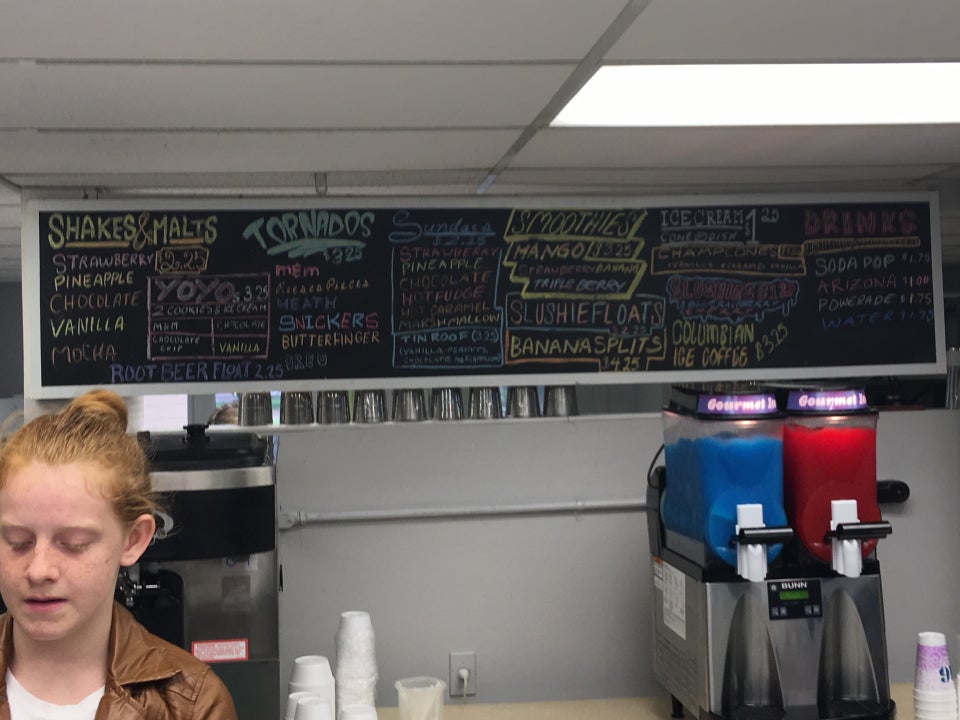 SHAKES & MALTS
STRAWBERRY 2.25
PINEAPPLE
CHOCOLATE
VANILLA
MOCHA
YOYO $3.25
2 COOKIES & ICE CREAM
M&M CHOCOLATE
CHOCOLATE CHIP VANILLA
ROOT BEER FLOAT 2.25
TORNADOS
$3.25
m&m
Reeses Pieces
HEATH
SNICKERS
BUTTERFINGER
OREO
Sundaes
$2.25
STRAWBERRY
PINEAPPLE
CHOCOLATE
HOT FUDGE
HOT CARAMEL
MARSHMALLOW
TIN ROOF (3.25)
(VANILLA PEANUTS,
CHOCOLATE
SMOOTHIES
MANGO $3.25
STRAWBERRY BANANA
TRIPLE BERRY
SLUSHIE FLOATS
BANANA SPLITS
$4.25
ICE CREAM $1.25
CONE OR DISH
CHAMP CONES
VANILLA & CARAMEL VANILLA
SLUSHIES
COLUMBIAN
ICE COFFEE $3.25
DRINKS
SODA POP $1.75
ARIZONA $1.00
POWERADE $1.75
WATER
Gourmet
Gourmet
BUNN